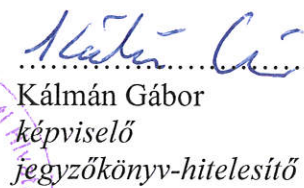 Kálmán Gábor
képviselő
jegyzőkönyv-hitelesítő